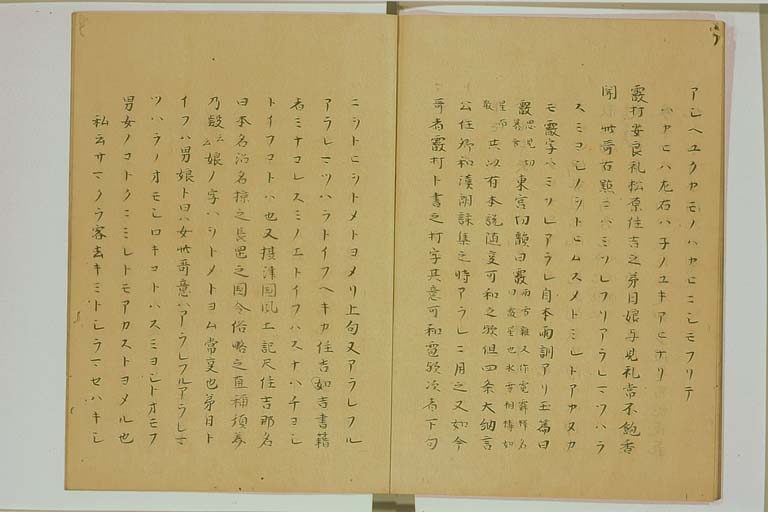 アシヘユクカモノハカヒニシモフリテ
ハカヒハ左右ハ子ノユキアヒナリ
霰打安良礼松原住吉之弟日娘与見礼常不飽香
聞 此哥右點ニハミソレフリアラレマツハラ
スミヨシノシトヒムスメトミレトアカヌカ
モ霰字ヘミソレアラレ自本両訓アリ玉篇曰
霰思見切 東宮切韻曰霰雨雪雜又作霓釋名曰霰星也水雪相搏如
星而散 共以有本説随 可和之歟但四条大納言
公任卿和漢朗詠集之時アラレニ用之又如今
哥者霰打ト書之打字其意可和霓歟次者下句
ニシトヒシトメトヨメリ上句又アラレフル
アラレマツハラトイフヘキカ住吉如吉書籍
者ミナコレスミノエトイフハスナハチヨシ
トイフコトハ也又摂津国風土記尺住吉那名
曰本名沼名椋之長邑之国今俗略之直稱須美
乃叡云々 娘ノ字ハシトメトヨム常事也弟日ト
イフハ男娘ト曰ハ女此哥意ハアラレフルアラレマ
ツハラノオモシロキコトハスミヨシトオモフ
男女ノコトクニミレトモアカストヨメル也
私云サマクラ客去キミトシラマセハキシ